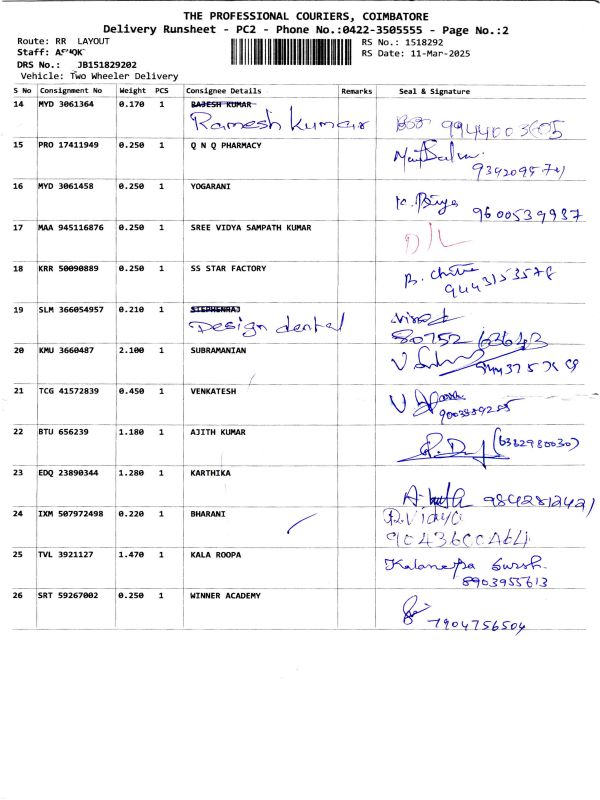 THE PROFESSIONAL COURIERS, COIMBATORE
Delivery Runsheet - PC2 - Phone No.:0422-3505555 - Page No.:2
Route: RR LAYOUT
RS No.: 1518292
Staff:
RS Date: 11-Mar-2025
DRS No.: JB151829202
Vehicle: Two Wheeler Delivery
S No Consignment No Weight PCS Consignee Details Remarks Seal & Signature
14 MYD 3061364 0.170 1 RAJESH KUMAR
Ramesh Kumar 9944003605
15 PRO 17411949 0.250 1 Q N Q PHARMACY
16 MYD 3061458 0.250 1 YOGARANI
K. Priya 9600539937
17 MAA 945116876 0.250 1 SREE VIDYA SAMPATH KUMAR
D/L
18 KRR 50090889 0.250 1 SS STAR FACTORY
B. Chitra
9443153578
19 SLM 366054957 0.210 1 STEPHENRAJ
Design dental
80752 63643
20 KMU 3660487 2.100 1 SUBRAMANIAN
21 TCG 41572839 0.450 1 VENKATESH
22 BTU 656239 1.180 1 AJITH KUMAR
(6382980030)
23 EDQ 23890344 1.280 1 KARTHIKA
9842812421
24 IXM 507972498 0.220 1 BHARANI
R.Vidya
9043600464
25 TVL 3921127 1.470 1 KALA ROOPA
8903955613
26 SRT 59267002 0.250 1 WINNER ACADEMY
7904756504